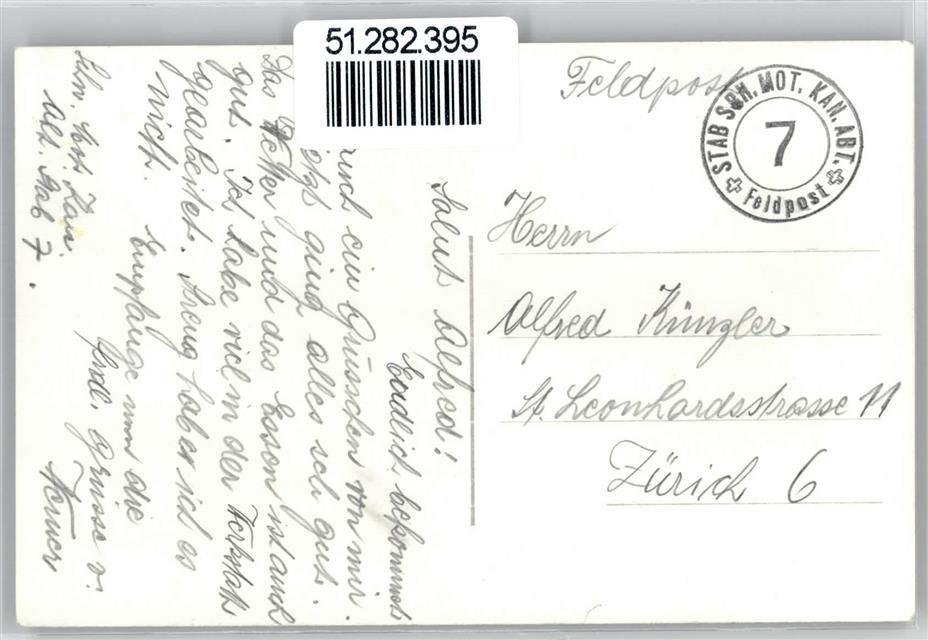 51.282.395
Feldpost
STAB SCH. MOT. KAN. ABT.
7
Feldpost
Herrn
Alfred Künzler
St. Leonhardsstrasse 11
Zürich 6
Salut Alfred!
Endlich bekommst
auch ein Grüsschen von mir.
etzt ging alles seh gut.
Das Wetter und das Essen ist auch
gut. Ich habe viel in der Werkstatt
gearbeitet. Streng habe ich es
nicht.
Empfange nun die
frdl. grüsse v.
Werner
Schw. Mot. Kan.
Abt. Stab 7.